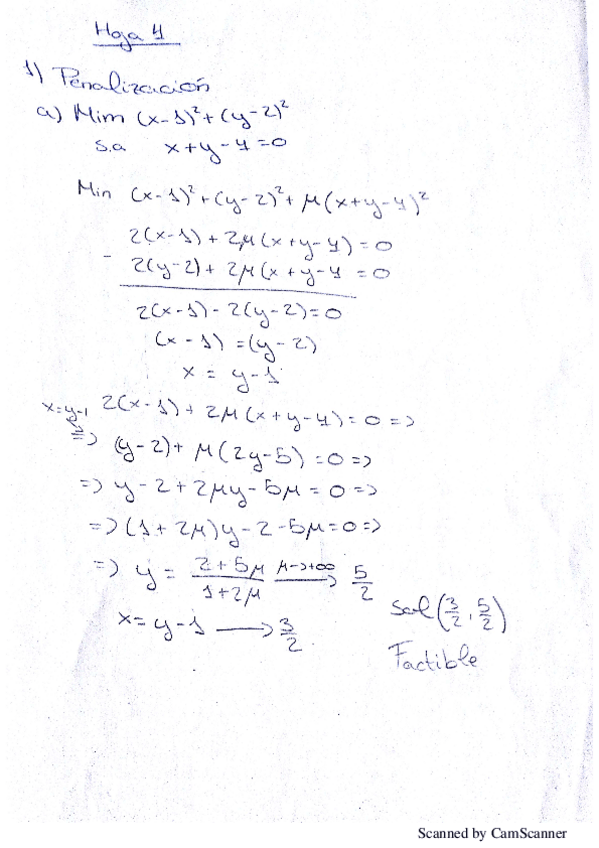 Hoja 4
1) Penalización
a) Mim (x-1)²+(y-2)²
s.a x+y-4=0
Min (x-1)²+(y-2)²+μ(x+y-4)²
2(x-1)+2μ(x+y-4)=0
- 2(y-2)+2μ(x+y-4 =0
2(x-1)-2(y-2)=0
(x-1)=(y-2)
x = y-1
x=y-1 2(x-1)+2μ(x+y-4)=0 =>
=> (y-2)+μ(2y-5)=0 =>
=> y-2+2μy-5μ=0 =>
=> (1+2μ)y-2-5μ=0 =>
=> y = (2+5μ)/(1+2μ) μ->+∞ ⟶ 5/2
x=y-1 ⟶ 3/2
sol(3/2, 5/2)
Factible
Scanned by CamScanner